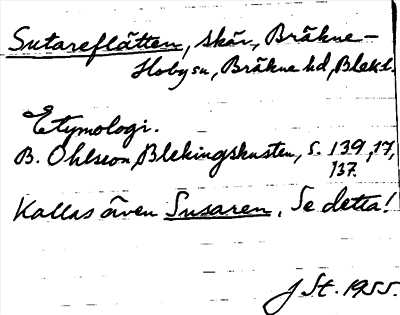 Sutareflätten, skär, Bräkne-
Hoby sn, Bräkne hd, Blek l.
Etymologi.
B. Ohlsson, Blekingskusten, s. 139, 17,
137.
Kallas även Susaren. Se detta!
J St. 1955.